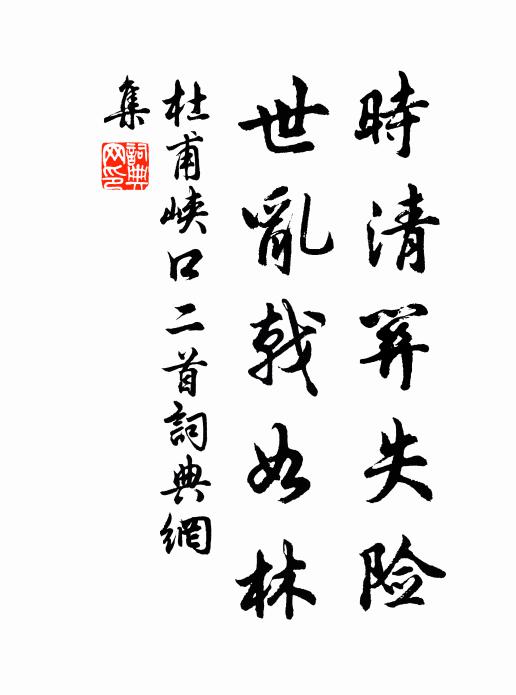 時清關失险
世亂戟如林
杜甫峽口二首詞典網
集
詞典网印